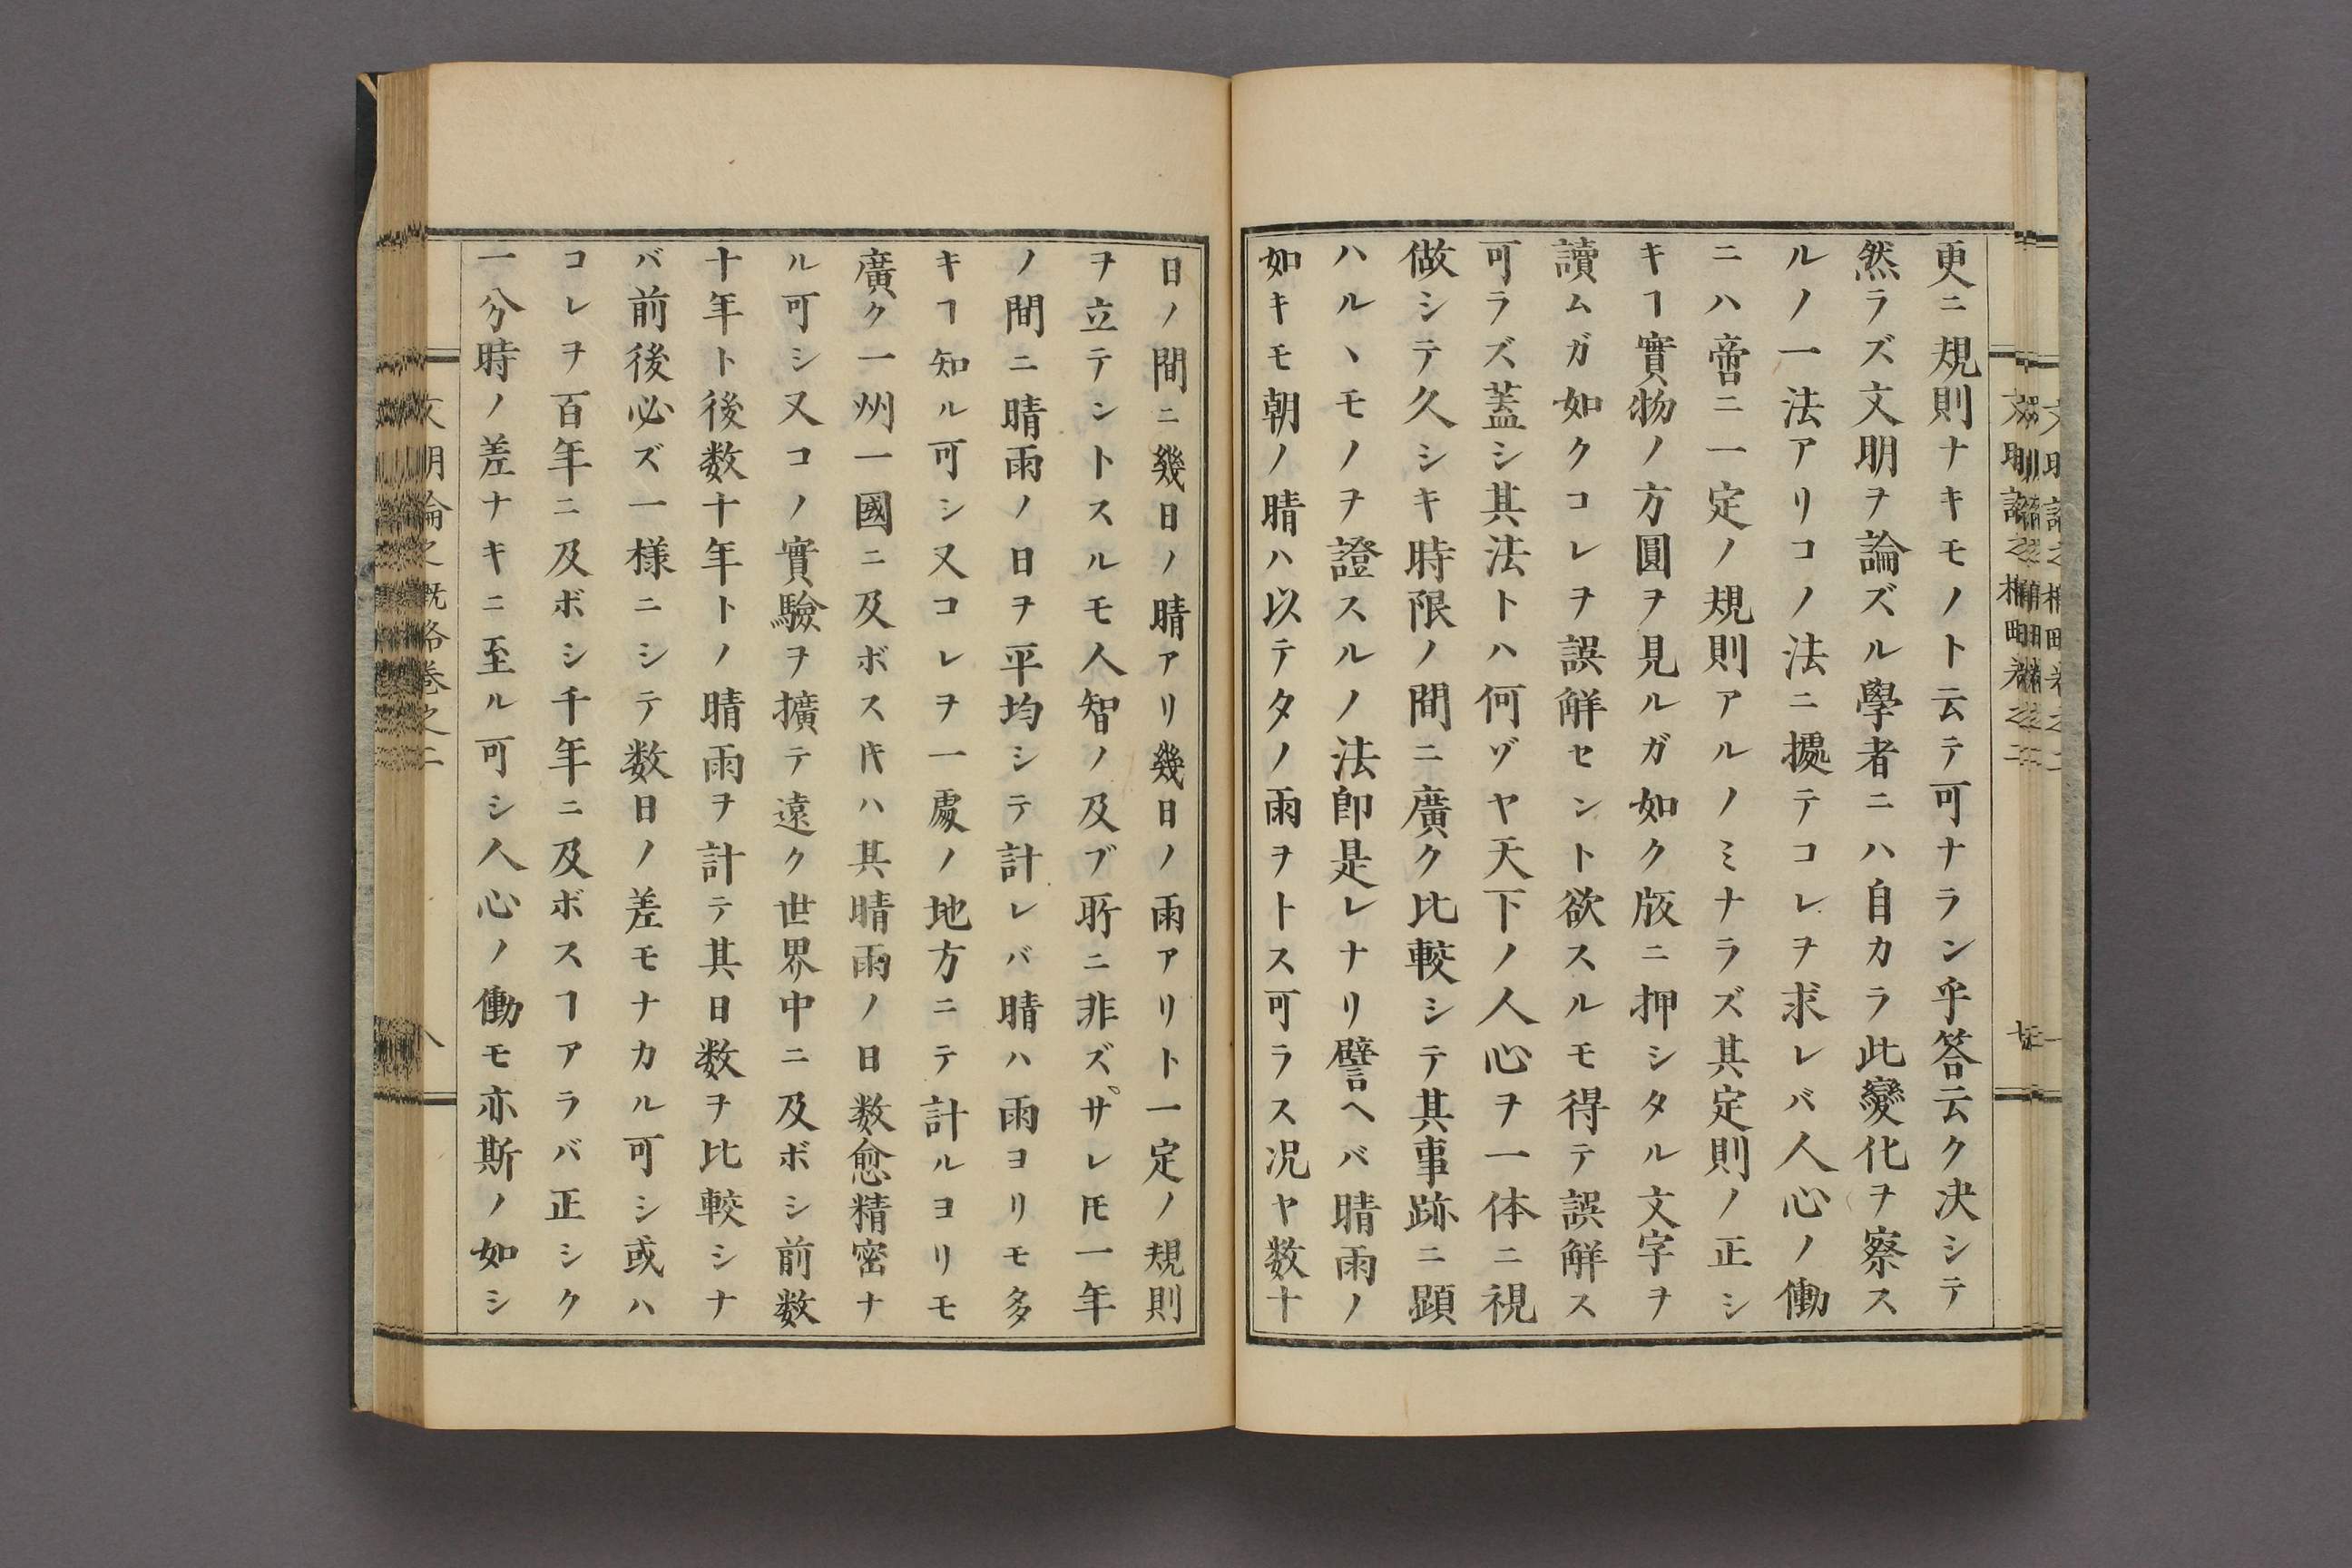 更ニ規則ナキモノト云テ可ナラン乎答云ク決シテ
然ラズ文明ヲ論ズル學者ニハ自カラ此變化ヲ察ス
ルノ一法アリコノ法ニ據テコレヲ求レバ人心ノ働
ニハ啻ニ一定ノ規則アルノミナラズ其定則ノ正シ
キヿ實物ノ方圓ヲ見ルガ如ク版ニ押シタル文字ヲ
讀ムガ如クコレヲ誤解セント欲スルモ得テ誤解ス
可ラズ蓋シ其法トハ何ゾヤ天下ノ人心ヲ一体ニ視
做シテ久シキ時限ノ間ニ廣ク比較シテ其事跡ニ顕
ハルヽモノヲ證スルノ法即是レナリ譬ヘバ晴雨ノ
如キモ朝ノ晴ハ以テタノ雨ヲトス可ラス况ヤ数十
日ノ間ニ幾日ノ晴アリ幾日ノ雨アリト一定ノ規則
ヲ立テントスルモ人智ノ及ブ所ニ非ズサレ𪜈一年
ノ間ニ晴雨ノ日ヲ平均シテ計レバ晴ハ雨ヨリモ多
キヿ知ル可シ又コレヲ一處ノ地方ニテ計ルヨリモ
廣ク一州一國ニ及ボス片ハ其晴雨ノ日数愈精密ナ
ル可シ又コノ實驗ヲ擴テ遠ク世界中ニ及ボシ前数
十年ト後数十年トノ晴雨ヲ計テ其日数ヲ比較シナ
バ前後必ズ一様ニシテ数日ノ差モナカル可シ或ハ
コレヲ百年ニ及ボシ千年ニ及ボスヿアラバ正シク
一分時ノ差ナキニ至ル可シ人心ノ働モ亦斯ノ如シ
文明論之概略巻之二
八